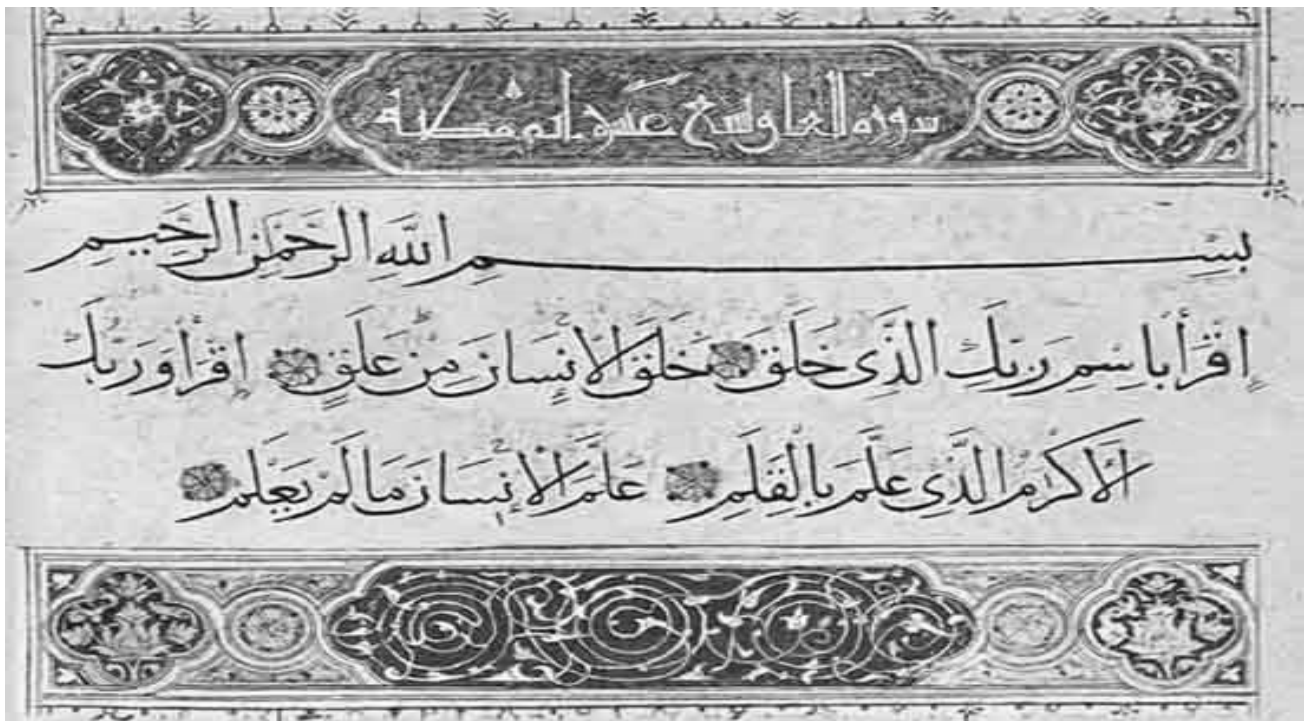 سورة العلق وتسع عشر اية مكية
بِسْمِ اللَّهِ الرَّحْمَٰنِ الرَّحِيمِ
إِقْرَأْ بِاسْمِ رَبِّكَ الَّذِى خَلَقَ خَلَقَ الْإِنسَانَ مِنْ عَلَقٍ إِقْرَأْ وَرَبُّكَ
الْأَكْرَمُ الَّذِى عَلَّمَ بِالْقَلَمِ عَلَّمَ الْإِنسَانَ مَا لَمْ يَعْلَمْ